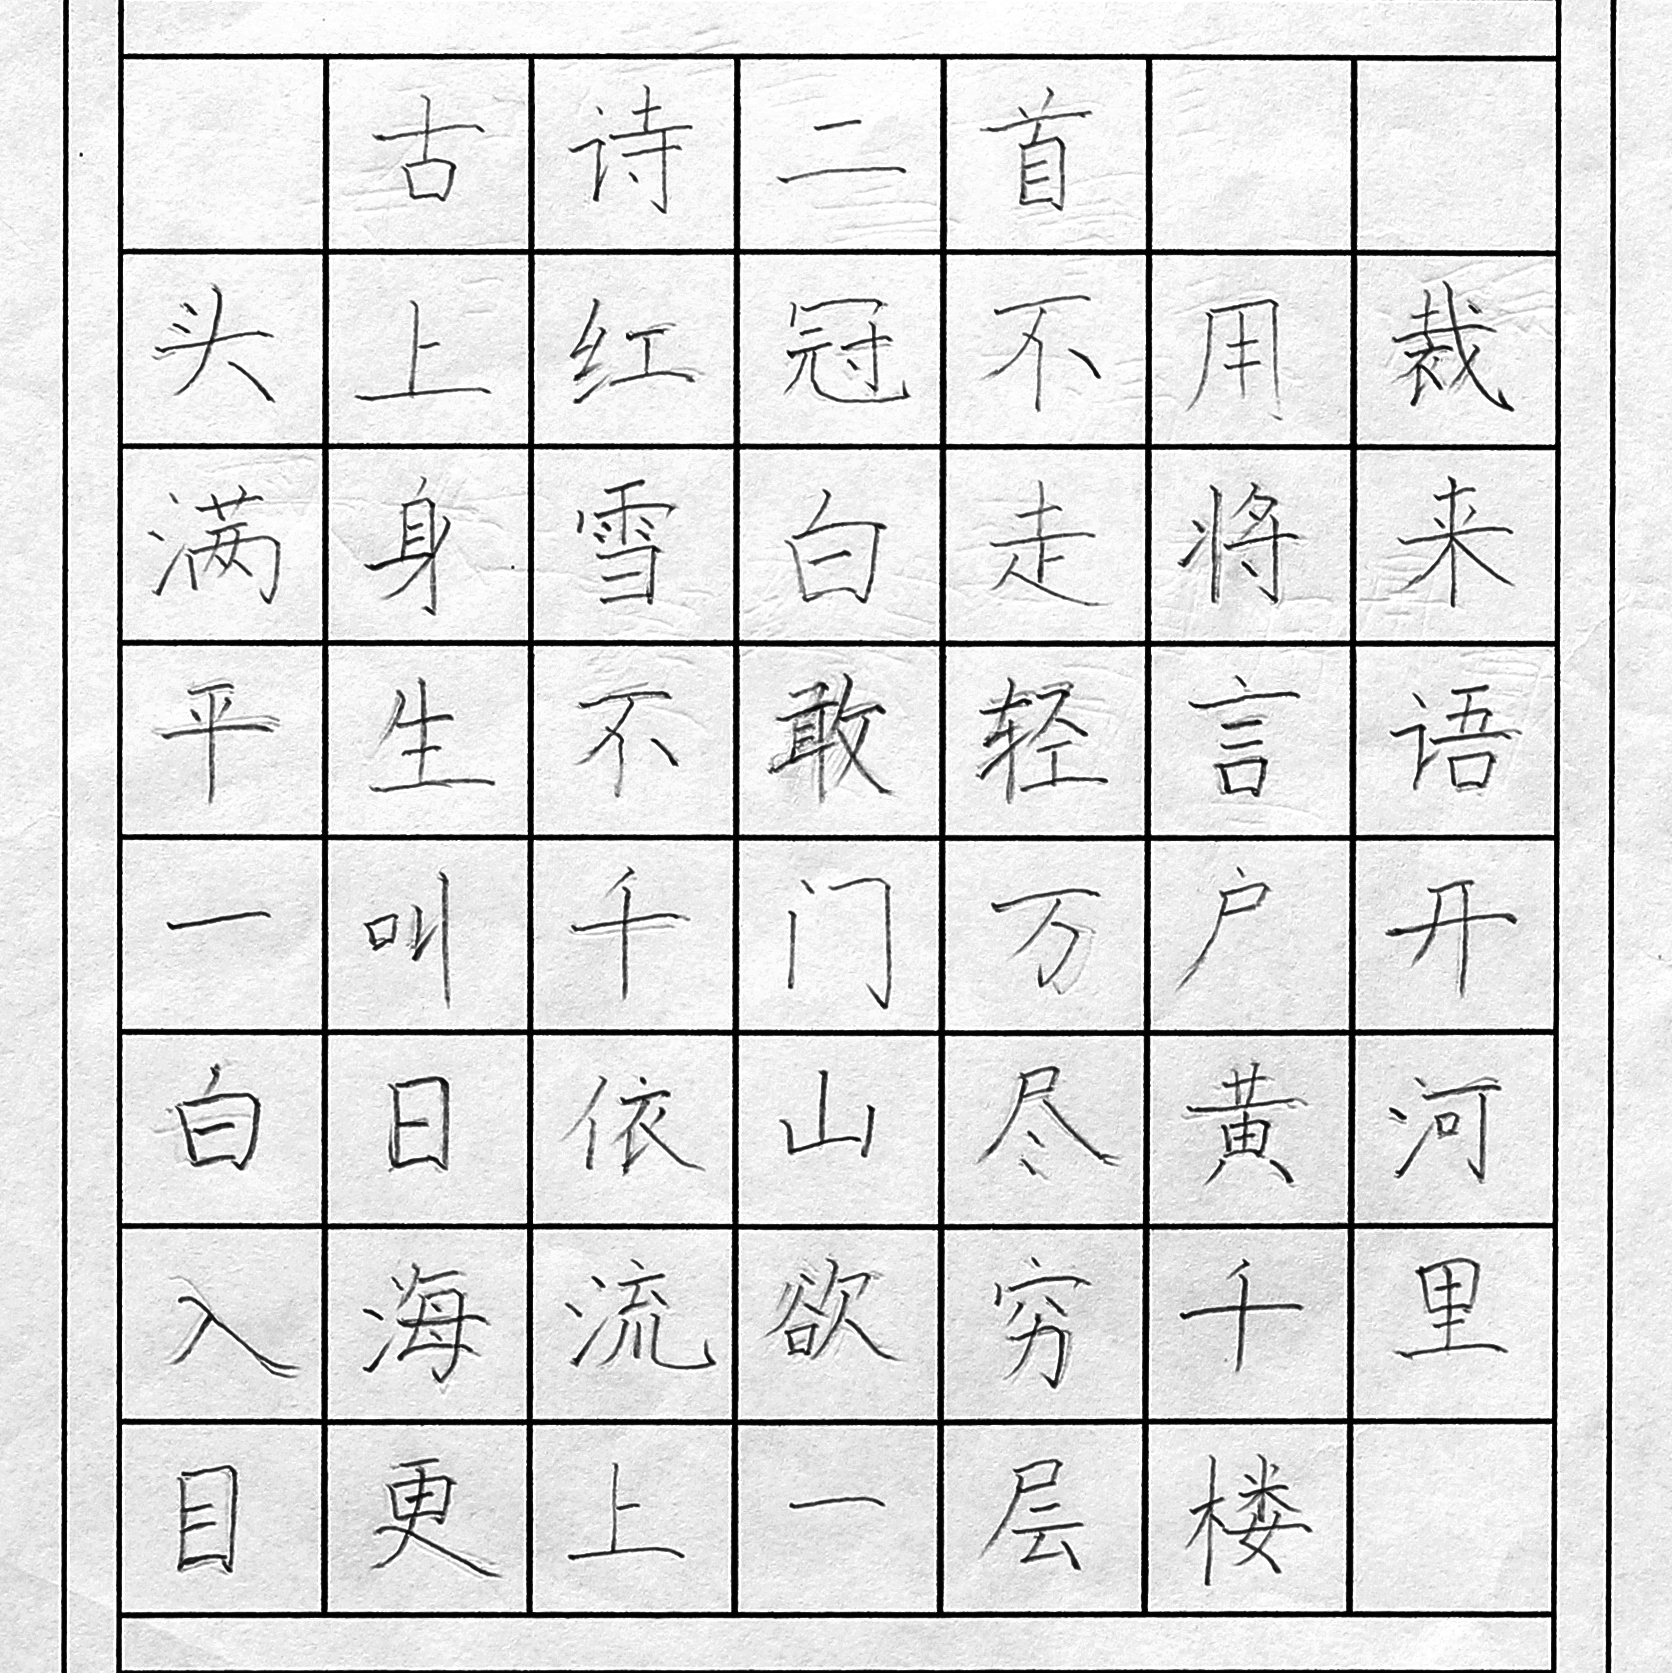 古诗二首
头上红冠不用裁
满身雪白走将来
平生不敢轻言语
一叫千门万户开
白日依山尽黄河
入海流欲穷千里
目更上一层楼